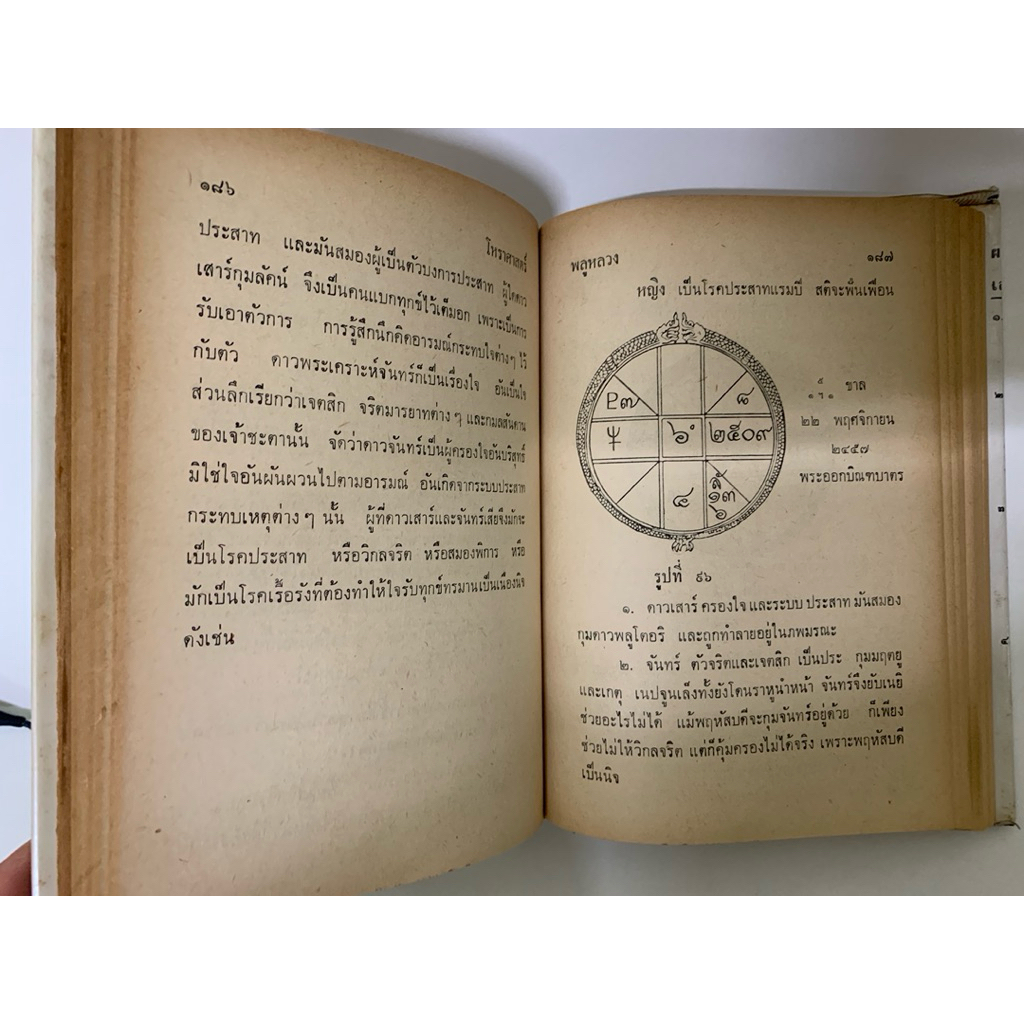 ๑๘๖
โหราศาสตร์
ประสาท และมันสมองผู้เป็นตัวบงการประสาท ผู้ใดดาว
เสาร์กุมลัคน์ จึงเป็นคนแบกทุกข์ไว้เต็มอก เพราะเป็นการ
รับเอาตัวการ การรู้สึกนึกคิดอารมณ์กระทบใจต่างๆ ไว้
กับตัว ดาวพระเคราะห์จันทร์ก็เป็นเรื่องใจ อันเป็นใจ
ส่วนลึกเรียกว่าเจตสิก จริตมารยาทต่างๆ และกมลสันดาน
ของเจ้าชะตานั้น จัดว่าดาวจันทร์เป็นผู้ครองใจอันบริสุทธิ์
มิใช่ใจอันผันผวนไปตามอารมณ์ อันเกิดจากระบบประสาท
กระทบเหตุต่างๆ นั้น ผู้ที่ดาวเสาร์และจันทร์เสียจึงมักจะ
เป็นโรคประสาท หรือวิกลจริต หรือสมองพิการ หรือ
มักเป็นโรคเรื้อรังที่ต้องทำให้ใจรับทุกข์ทรมานเป็นเนืองนิจ
ดังเช่น
พลูหลวง
๑๘๗
หญิง เป็นโรคประสาทแรมปี สติจะฟั่นเฟือน
๗
๘
๖
๒๕๐๙
๘
ลั
๑๓
๖
ขาล
๒๒ พฤศจิกายน
๒๔๕๗
พระออกบิณฑบาตร
รูปที่ ๙๖
๑. ดาวเสาร์ ครองใจ และระบบ ประสาท มันสมอง
กุมดาวพลูโตอริ และถูกทำลายอยู่ในภพมรณะ
๒. จันทร์ ตัวจริตและเจตสิก เป็นประ กุมมฤตยู
และเกตุ เนปจูนเล็งทั้งยังโดนราหูนำหน้า จันทร์จึงยับเนยิ
ช่วยอะไรไม่ได้ แม้พฤหัสบดีจะกุมจันทร์อยู่ด้วย ก็เพียง
ช่วยไม่ให้วิกลจริต แต่ก็คุ้มครองไม่ได้จริง เพราะพฤหัสบดี
เป็นนิจ